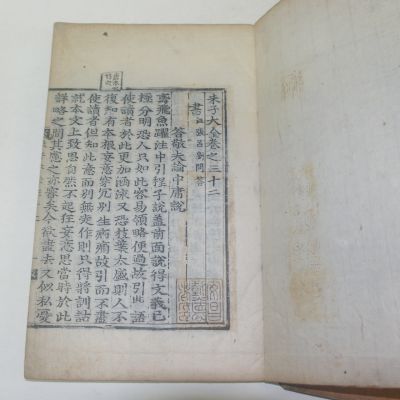 朱子大全卷之三十二
書 張呂劉問答
答敬夫論中庸說
鳶飛魚躍注中引程子說蓋前面說得文義已
極分明恐人只如此容易領略便過故引此語
使讀者於此更加涵泳又恐枝葉太盛則人不
復知有本根妄意穿穴別生病痛故引而不盡
使讀者但知此意而別無走作則只得將訓詁
就本文上致思自然不起狂妄意思當時於此
詳略之間其慮之亦審矣今欲盡去又似私憂